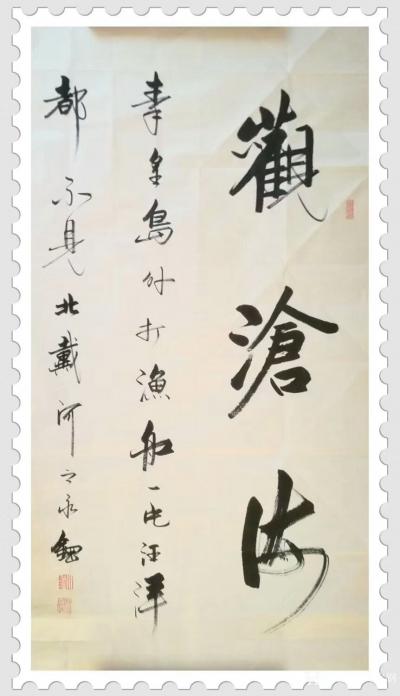 觀滄海
秦皇島外打漁船一片汪洋
都不見北戴河之永